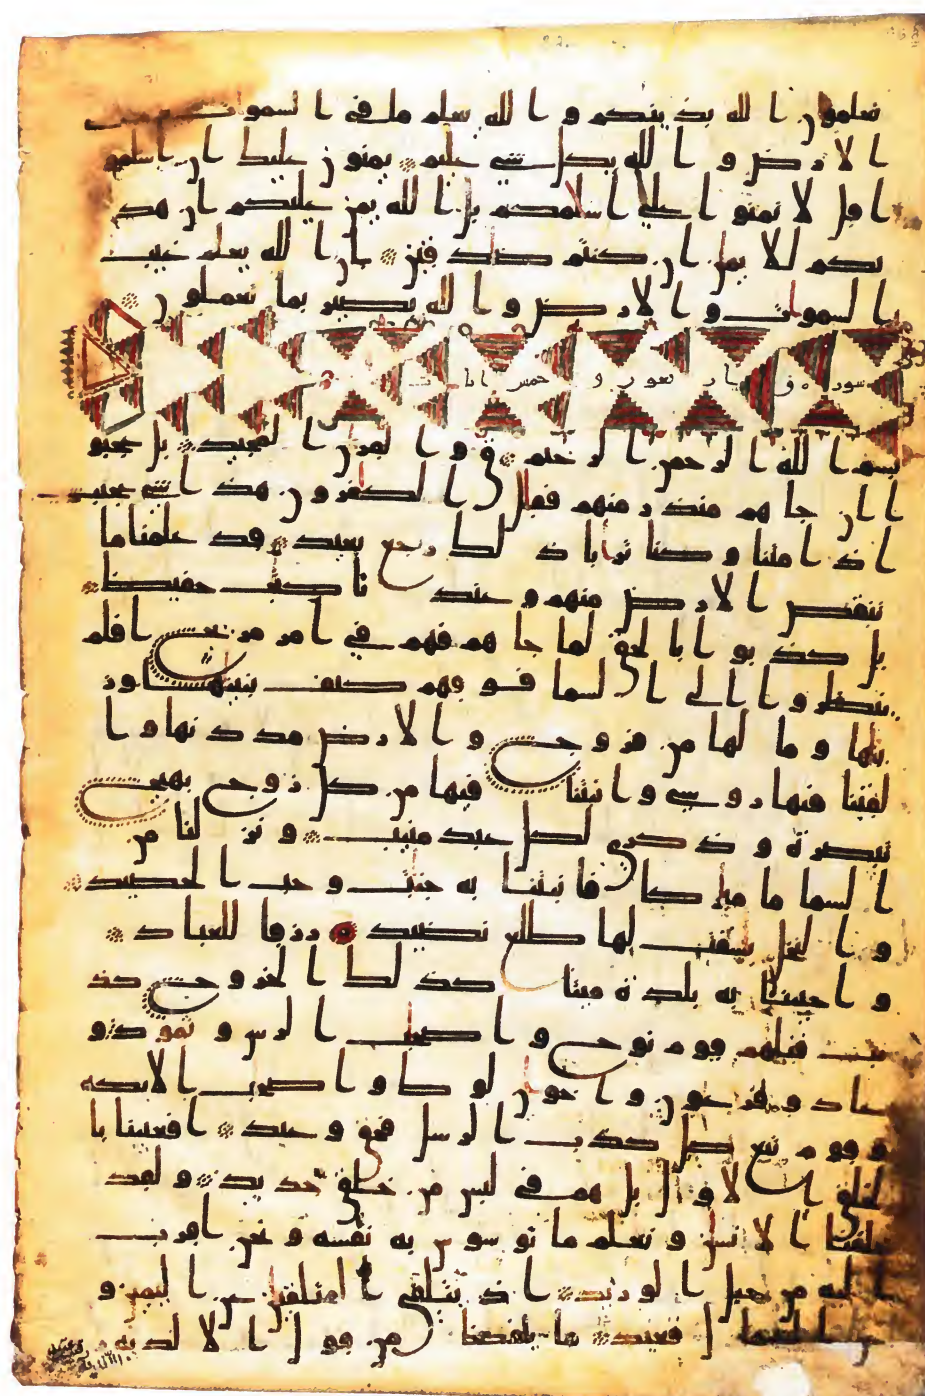 تعلمون الله بدينكم والله يعلم ما في السموات وما في
الارض والله بكل شي عليم يمنون عليك ان اسلمو
ا قل لا تمنوا علي اسلمكم بل الله يمن عليكم ان هد
يكم للايمن ان كنتم صدقين ان الله يعلم غيب
السموات والارض والله بصير بما تعملون
سورة ق اربعون و خمس ايات
بسم الله الرحمن الرحيم ق والقران المجيد بل عجبو
ا ان جاهم منذر منهم فقال الكفرون هذا شي عجيب
اذا متنا وكنا ترابا ذلك رجع بعيد قد علمنا ما
تنقص الارض منهم وعندنا كتب حفيظ
بل كذبوا بالحق لما جاهم فهم في امر مريج افلم
ينظروا الي السما فوقهم كيف بنينها وز
ينها وما لها من فروج والارض مددنها وا
لقينا فيها روسي وانبتنا فيها من كل زوج بهيج
تبصرة وذكري لكل عبد منيب ونزلنا من
السما ما مبركا فانبتنا به جنت وحب الحصيد
والنخل بسقت لها طلع نضيد رزقا للعباد
واحيينا به بلدة ميتا كذلك الخروج كذ
بت قبلهم قوم نوح واصحب الرس وثمود و
عاد وفرعون واخون لوط واصحب الايكة
وقوم تبع كل كذب الرسل فحق وعيد افعيينا با
لخلق الاول بل هم في لبس من خلق جديد ولقد
خلقنا الانسن ونعلم ما توسوس به نفسه ونحن اقرب
اليه من حبل الوريد اذ يتلقي المتلقين عن اليمين و
عن الشمال قعيد ما يلفظ من قول الا لديه